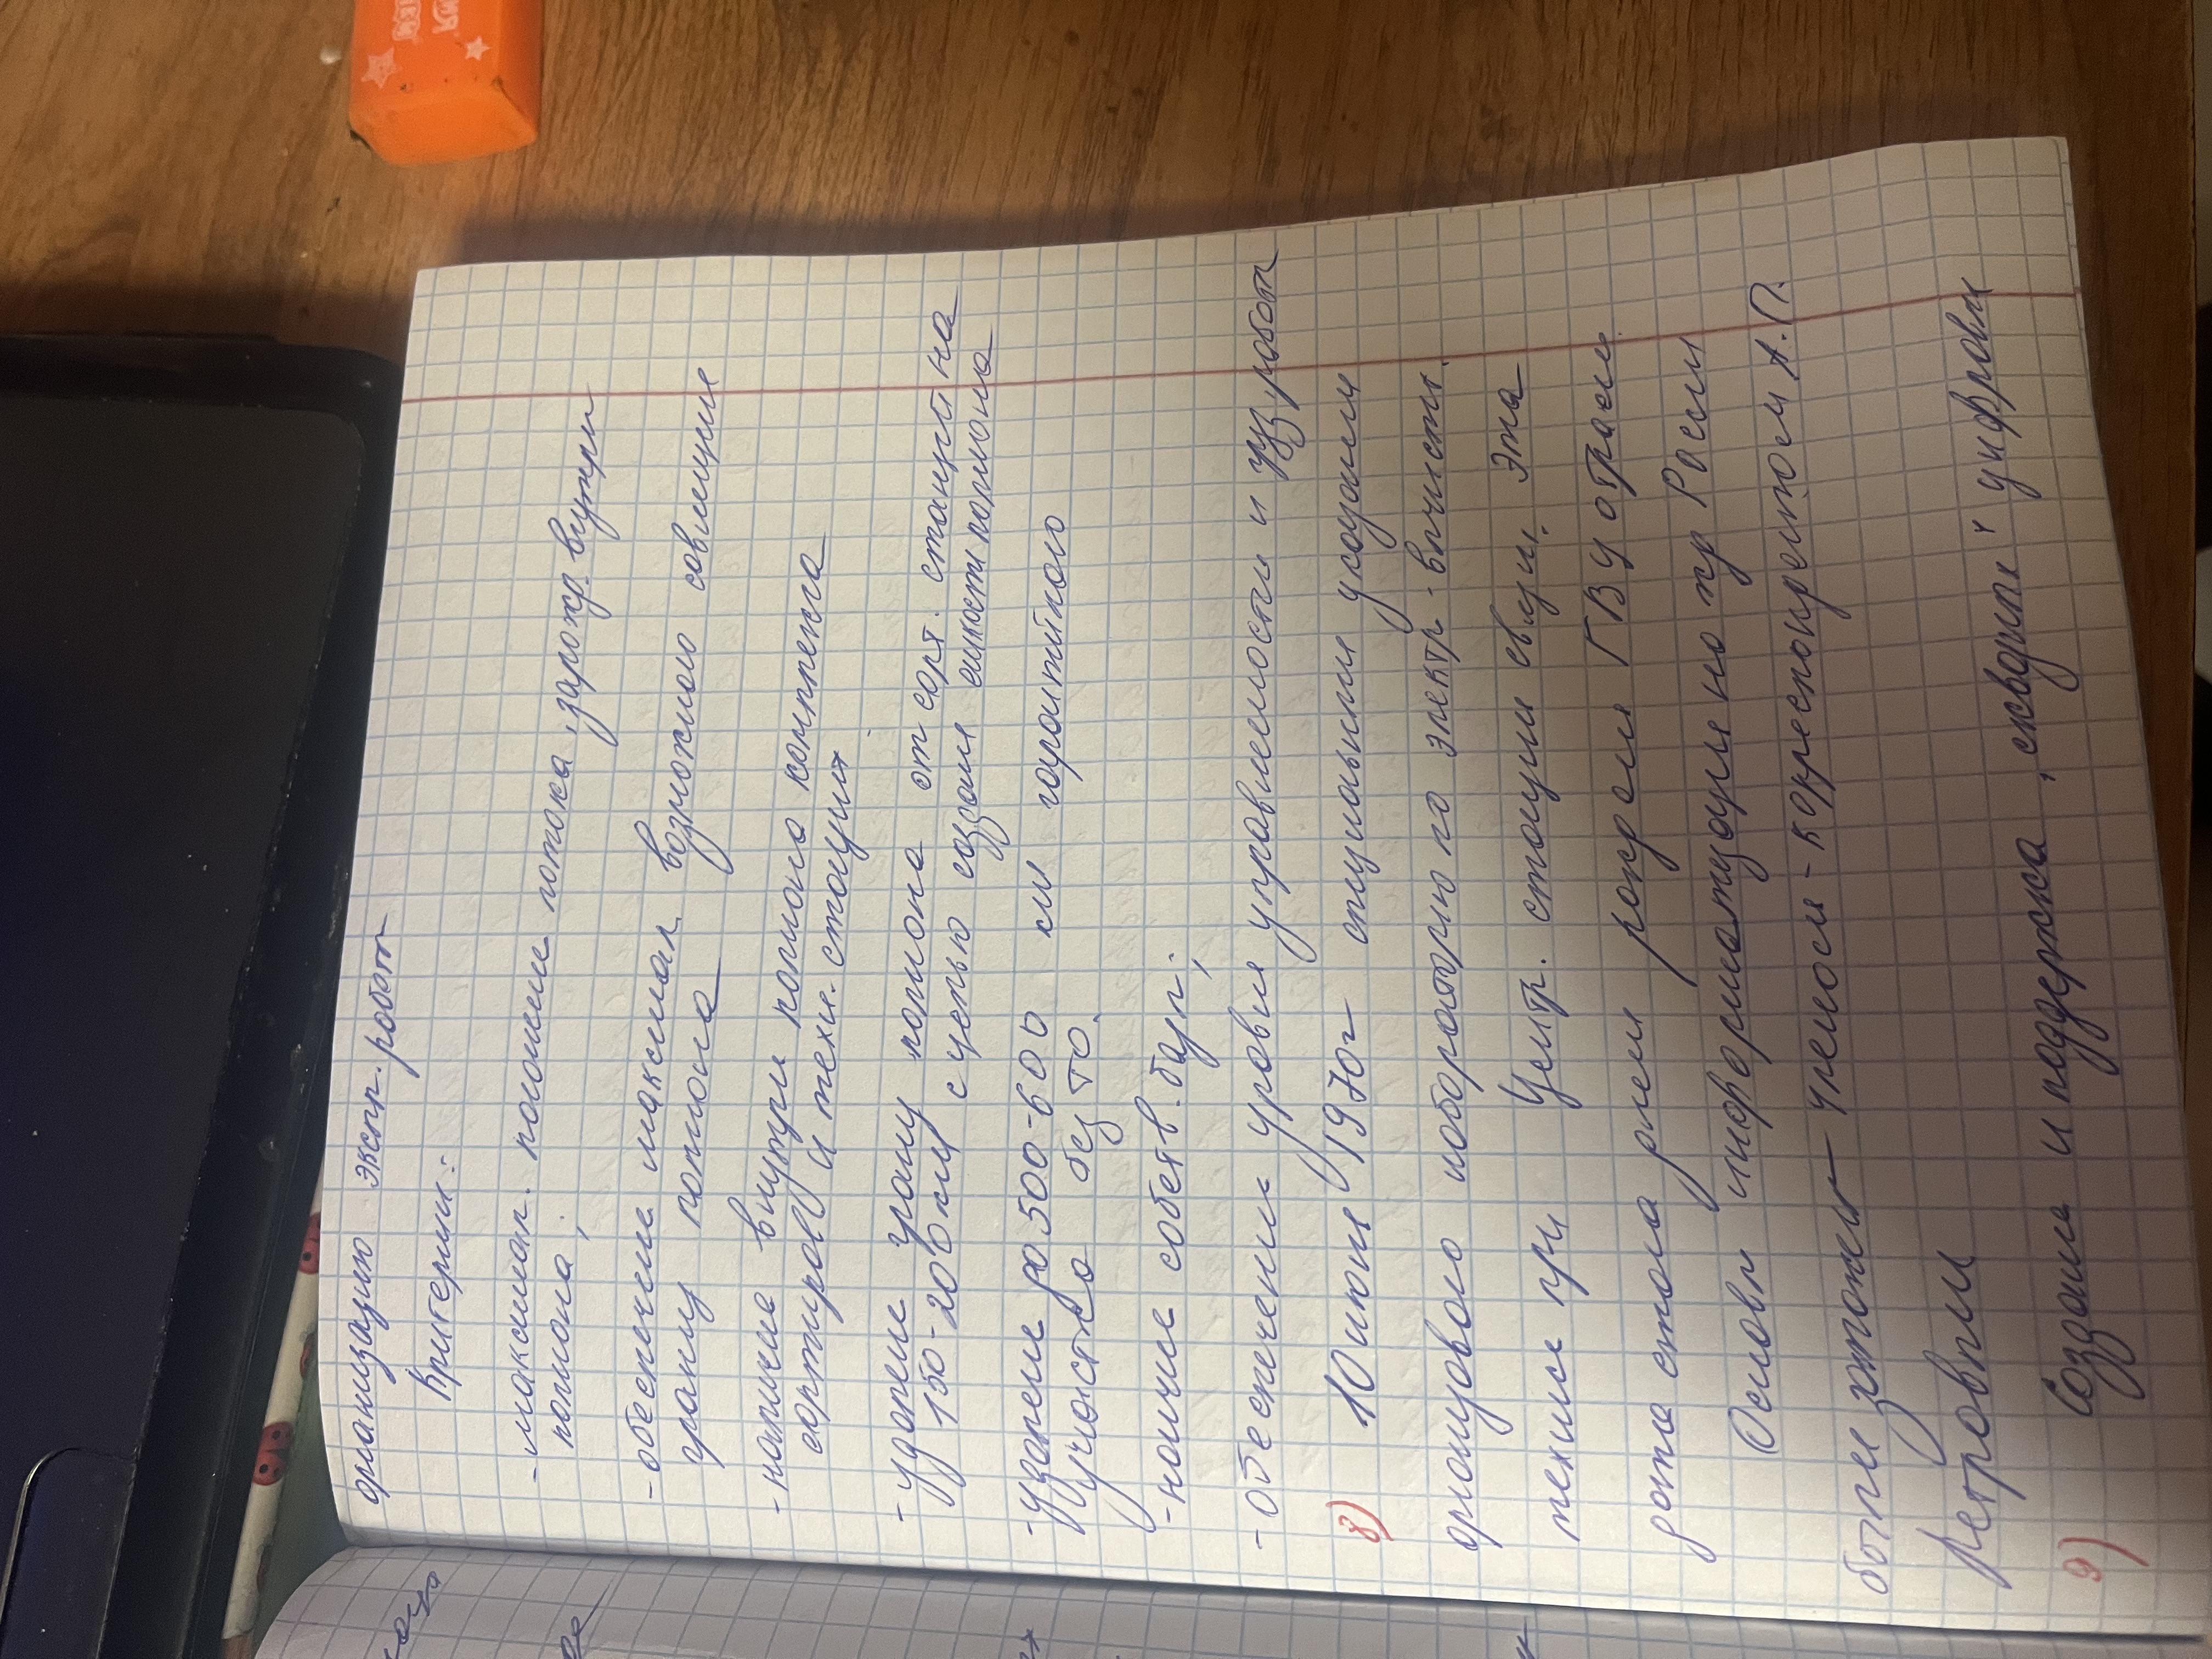 организацию экспл. работ
Критерии:
- максимал. погашение потока, зарожд. внутри
полигона;
- обеспечение максимал. возможного совмещения
границ полигона
- наличие внутри полигона комплекта
сортиров и техн. станций
- удаление границ полигона от сорт. станций на
150-200 км с целью создания емкости полигона
- удаление до 500-600 км гарантийного
участка без ТО.
- наличие собств. базы;
- обеспечения уровня управляемости и
8) 10 июня 1970г специальным указанием
организовано лабораторию по электр.-вычислит.
технике при Центр. станции связи. Эта
дата стала днем рожден ГВЦ отрасли
Основы информатизации на жд России
были заложены членом-корреспондентом А.П.
Петровым
9) Создание и поддержка, сквозных" цифровы